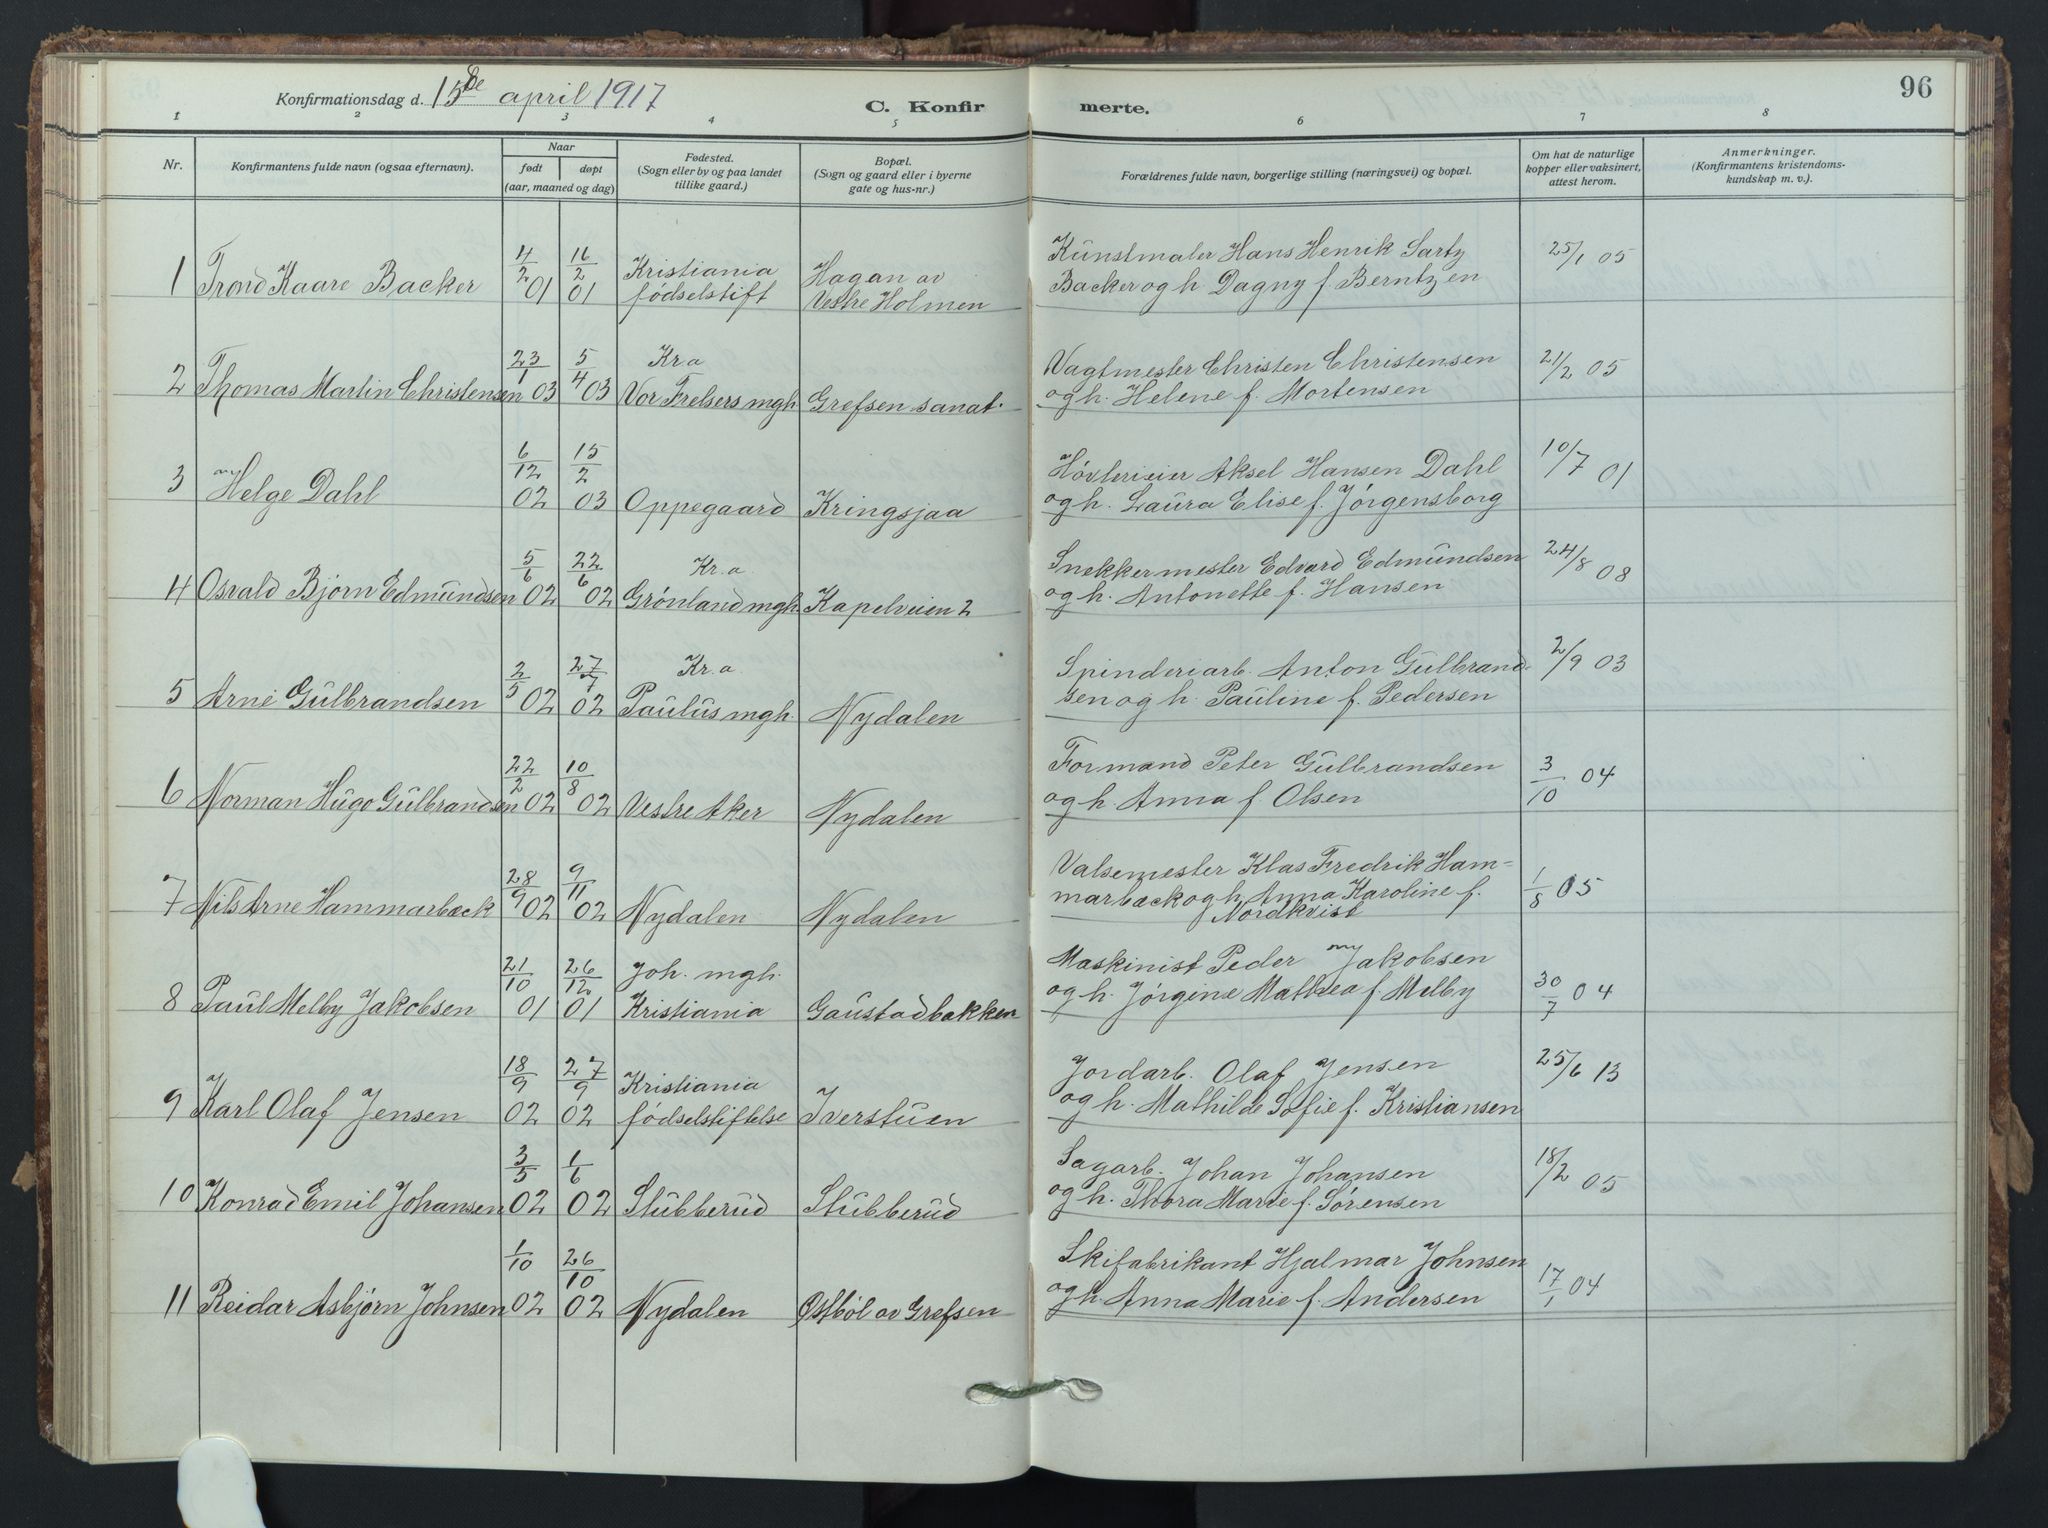 96
Konfirmationsdag d. 15de april 1917
C. Konfirmerte.
1 2 3 4 5 6 7 8
Nr. Konfirmantens fulde navn (ogsaa efternavn). Naar født døpt (aar, maaned og dag) Fødested. (Sogn eller by og paa landet tillike gaard.) Bopæl. (Sogn og gaard eller i byerne gate og hus-nr.) Forældrenes fulde navn, borgerlige stilling (næringsvei) og bopæl. Om hat de naturlige kopper eller vaksinert, attest herom. Anmerkninger. (Konfirmantens kristendoms-kundskap m. v.)
1 Trond Kaare Backer 4/2 01 16/2 01 Kristiania fødselstift Hagan av Vestre Holmen Kunstmaler Hans Henrik Sartz Backer og h. Dagny f. Berntzen 25/1 05
2 Thomas Martin Christensen 23/1 03 5/4 03 Kr.a Vor Frelsers mgh. Grefsen sanat. Vagtmester Christen Christensen og h. Helene f. Mortensen 21/2 05
3 Helge Dahl 6/12 02 15/2 03 Oppegaard Kringsjaa Høvlerieier Aksel Hansen Dahl og h. Laura Elise f. Jørgensborg 10/7 01
4 Osvald Bjørn Edmundsen 5/6 02 22/6 02 Kr.a. Grønland mgh. Kapelveien 2 Snekkermester Edvard Edmundsen og h. Antonette f. Hansen 24/8 08
5 Arne Gulbrandsen 2/5 02 27/7 02 Kr.a Paulus mgh. Nydalen Spinderiarb. Anton Gulbrandsen og h. Pauline f. Pedersen 2/9 03
6 Norman Hugo Gulbrandsen 22/2 02 10/8 02 Vestre Aker Nydalen Formand Peter Gulbrandsen og h. Anna f. Olsen 3/10 04
7 Nils Arne Hammarbæck 28/9 02 9/11 02 Nydalen Nydalen Valsemester Klas Fredrik Ham=marbæck og h. Anna Karoline f. Nordkvist 1/8 05
8 Paul Melby Jakobsen 21/10 01 26/12 01 Joh. mgh. Kristiania Gaustadbakken Maskinist Peder Jakobsen og h. Jørgine Mathea f. Melby 30/7 04
9 Karl Olaf Jensen 18/9 02 27/9 02 Kristiania fødselstiftelse Iverstuen Jordarb. Olaf Jensen og h. Mathilde Sofie f. Kristiansen 25/6 13
10 Konrad Emil Johansen 3/5 02 1/6 02 Stubberud Stubberud Sagarb. Johan Johansen og h. Thora Marie f. Sørensen 18/2 05
11 Reidar Asbjørn Johnsen 1/10 02 26/10 02 Nydalen Østbøl av Grefsen Skifabrikant Hjalmar Johnsen og h. Anna Marie f. Andersen 17/1 04